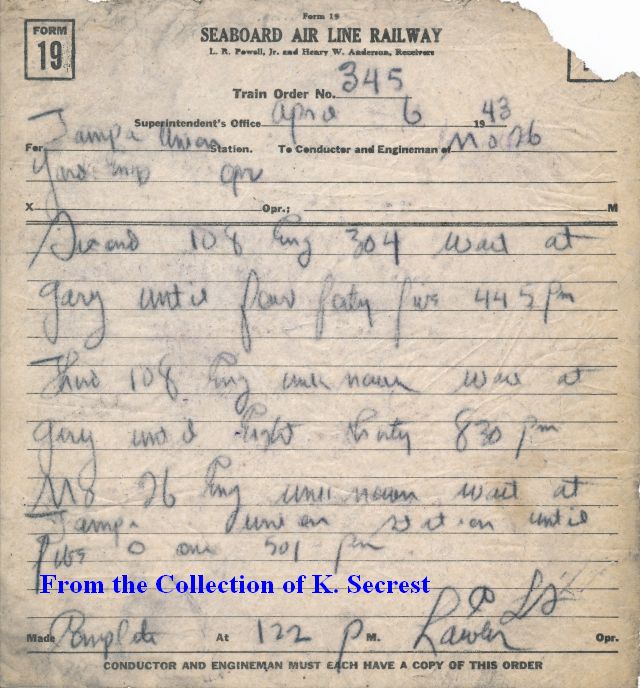 Form 19
FORM
19
SEABOARD AIR LINE RAILWAY
L. R. Powell, Jr. and Henry W. Anderson, Receivers
Train Order No. 345
Superintendent's Office April 6 1943
For Tampa Union Station. To Conductor and Engineman of No 26
Yard Opr
X Opr.; M
Second 108 Eng 304 wait at
Gary until four forty five 445 pm
Third 108 Eng unknown wait at
Gary until Eight thirty 830 pm
No 26 Eng unknown wait at
Tampa Union station until
five 0 one 501 pm
From the Collection of K. Secrest
Made Complete At 122 P M. Lawler Opr.
CONDUCTOR AND ENGINEMAN MUST EACH HAVE A COPY OF THIS ORDER